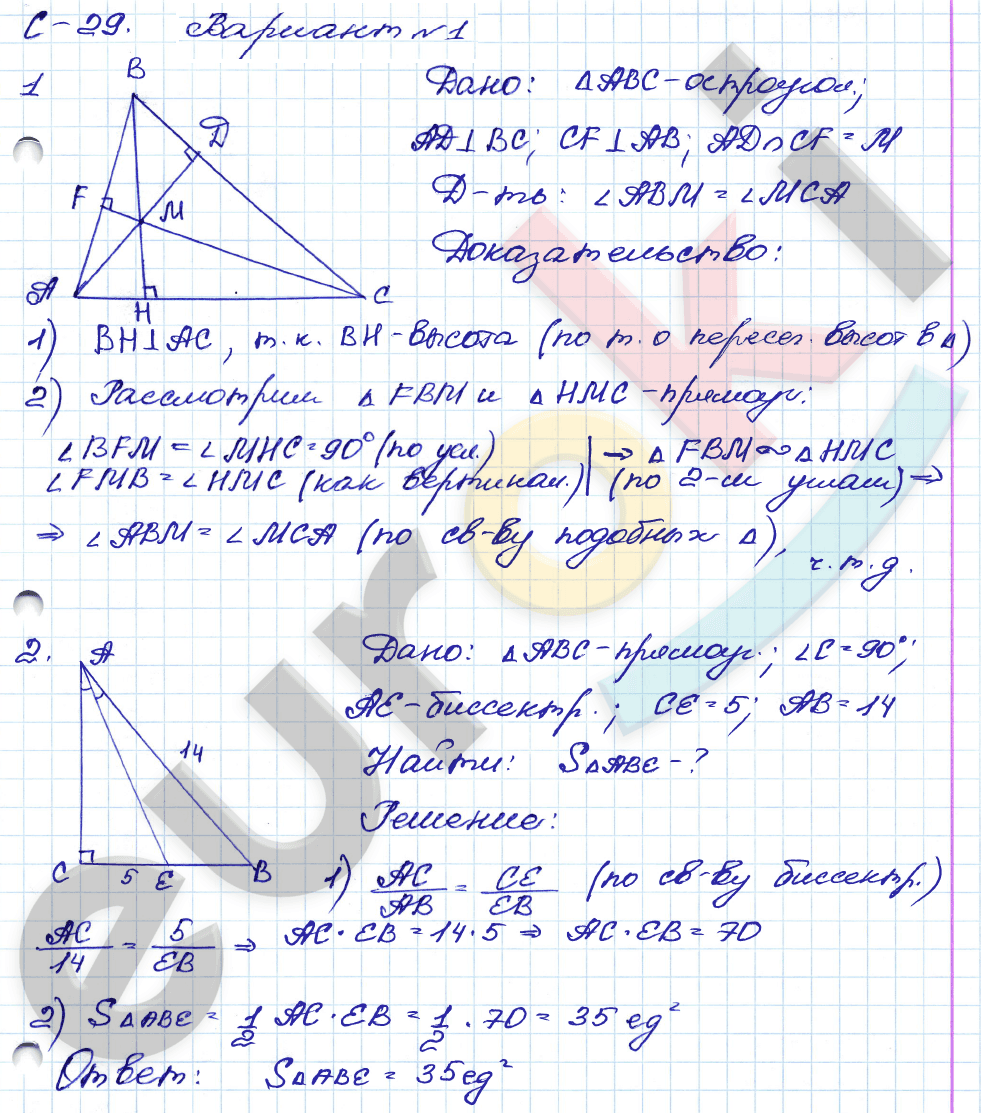 С-29. Вариант №1
1
B
D
F
M
A
H
C
Дано: △ABC-остроугол.;
AD⊥BC; CF⊥AB; AD∩CF=M
Д-ть: ∠ABM=∠MCA
Доказательство:
1) BH⊥AC, т.к. BH-высота (по т. о пересеч. высот в △)
2) Рассмотрим △FBM и △HMC-прямоуг:
∠BFM=∠MHC=90° (по усл.) | → △FBM∾△HMC
∠FMB=∠HMC (как вертикал.) | (по 2-м углам) ⇒
⇒ ∠ABM=∠MCA (по св-ву подобных △),
ч.т.д.
2.
A
14
C
5
E
B
Дано: △ABC-прямоуг.; ∠C=90°;
AE-биссектр.; CE=5; AB=14
Найти: S△ABE-?
Решение:
1) AC/AB = CE/EB (по св-ву биссектр.)
AC/14 = 5/EB ⇒ AC·EB=14·5 ⇒ AC·EB=70
2) S△ABE = 1/2 AC·EB = 1/2 · 70 = 35 ед²
Ответ: S△ABE = 35 ед²
euroki